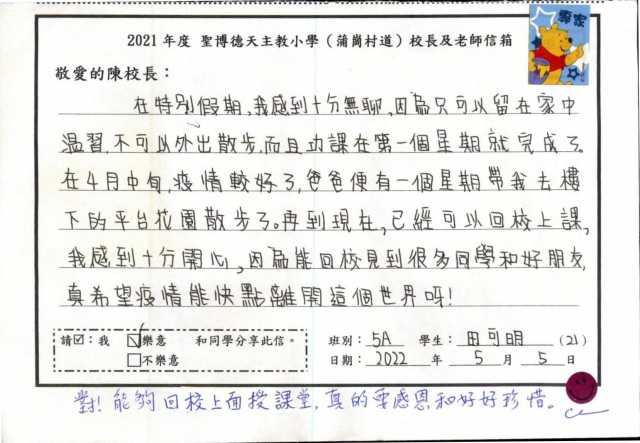 2021 年度 聖博德天主教小學（蒲崗村道）校長及老師信箱
專家
敬愛的陳校長：
在特別假期，我感到十分無聊，因為只可以留在家中
溫習，不可以外出散步，而且功課在第一個星期就完成了。
在4月中旬，疫情較好了，爸爸便有一個星期帶我去樓
下的平台花園散步了。再到現在，已經可以回校上課，
我感到十分開心，因為能回校見到很多同學和好朋友，
真希望疫情能快點離開這個世界呀！
請☑：我 ☑樂意 和同學分享此信。 班別： 5A 學生： 田可明 (21)
□不樂意 日期： 2022 年 5 月 5 日
對！能夠回校上面授課堂，真的要感恩和好好珍惜。